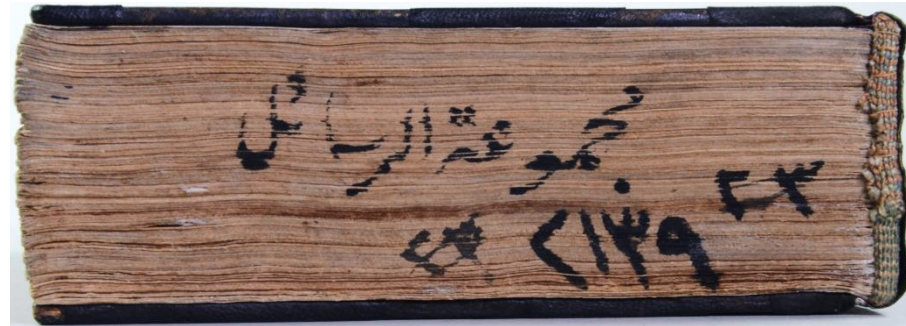 مجموعة الرسائل
٢٣
٢١٣٩